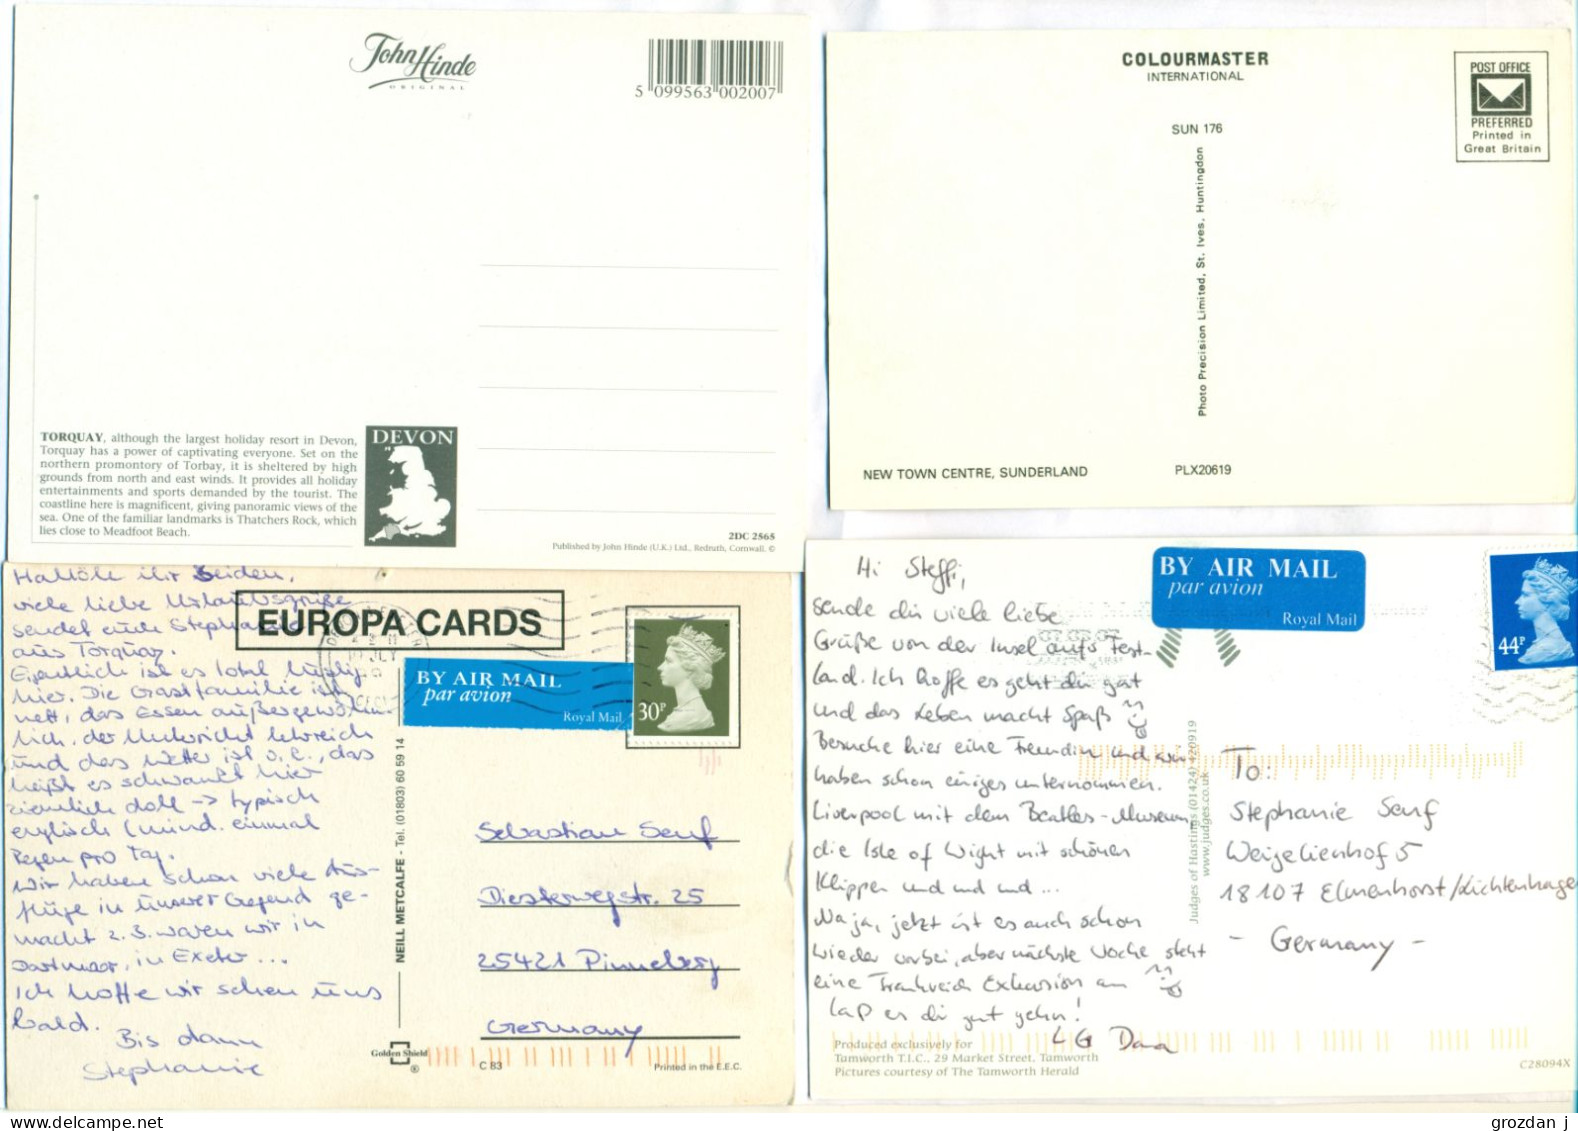 John Hinde
ORIGINAL
5 099563 002007
TORQUAY, although the largest holiday resort in Devon,
Torquay has a power of captivating everyone. Set on the
northern promontory of Torbay, it is sheltered by high
grounds from north and east winds. It provides all holiday
entertainments and sports demanded by the tourist. The
coastline here is magnificent, giving panoramic views of the
sea. One of the familiar landmarks is Thatchers Rock, which
lies close to Meadfoot Beach.
DEVON
2DC 2565
Published by John Hinde (U.K.) Ltd., Redruth, Cornwall. ©
COLOURMASTER
INTERNATIONAL
POST OFFICE
PREFERRED
Printed in
Great Britain
SUN 176
Photo Precision Limited, St. Ives, Huntingdon
NEW TOWN CENTRE, SUNDERLAND
PLX20619
Hallöle ihr Beiden,
viele liebe Urlaubsgrüße
sendet euch Stephanie
aus Torquay.
Eigentlich ist es total lustig
hier. Die Gastfamilie ist
nett, das Essen außergewöhn-
lich, der Unterricht lehrreich
und das Wetter ist o.k., das
heißt es schwankt hier
ziemlich doll -> typisch
englisch (mind. einmal
Regen pro Tag.
Wir haben schon viele Aus-
flüge in unserer Gegend ge-
macht z.B. waren wir in
Dartmoor, in Exeter ...
Ich hoffe wir sehen uns
bald.
Bis dann
Stephanie
EUROPA CARDS
BY AIR MAIL
par avion
Royal Mail
30P
NEILL METCALFE - Tel. (01803) 60 59 14
Sebastian Senf
Diesterwegstr. 25
25421 Pinneberg
Germany
Golden Shield
®
C 83
Printed in the E.E.C.
Hi Steffi,
sende dir viele liebe
Grüße von der Insel aufs Fest-
land. Ich hoffe es geht dir gut
und das Leben macht Spaß
Besuche hier eine Freundin und wir
haben schon einiges unternommen.
Liverpool mit dem Beatles-Museum
die Isle of Wight mit schönen
Klippen und und und ...
Na ja, jetzt ist es auch schon
wieder vorbei, aber nächste Woche steht
eine Frankreich Exkursion an
Laß es dir gut gehn!
LG Dana
BY AIR MAIL
par avion
Royal Mail
44P
Judges of Hastings (01424) 420919
www.judges.co.uk
To:
Stephanie Senf
Weizelienhof 5
18107 Elmenhorst/Lichtenhagen
- Germany -
Produced exclusively for
Tamworth T.I.C., 29 Market Street, Tamworth
Pictures courtesy of The Tamworth Herald
C28094X
grozdan j